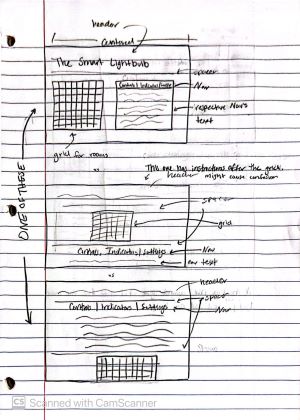 header
centered
The Smart Lightbulb
spacer
Nav
Controls | Indicators |
respective Nav's
text
grid for rooms
ONE OF THESE
vs
This one has instructions after the grid,
might cause confusion
header
spacer
grid
Controls, Indicators | Settings
Nav
nav text
vs
header
spacer
Controls | Indicators | Settings
Nav
CS Scanned with CamScanner